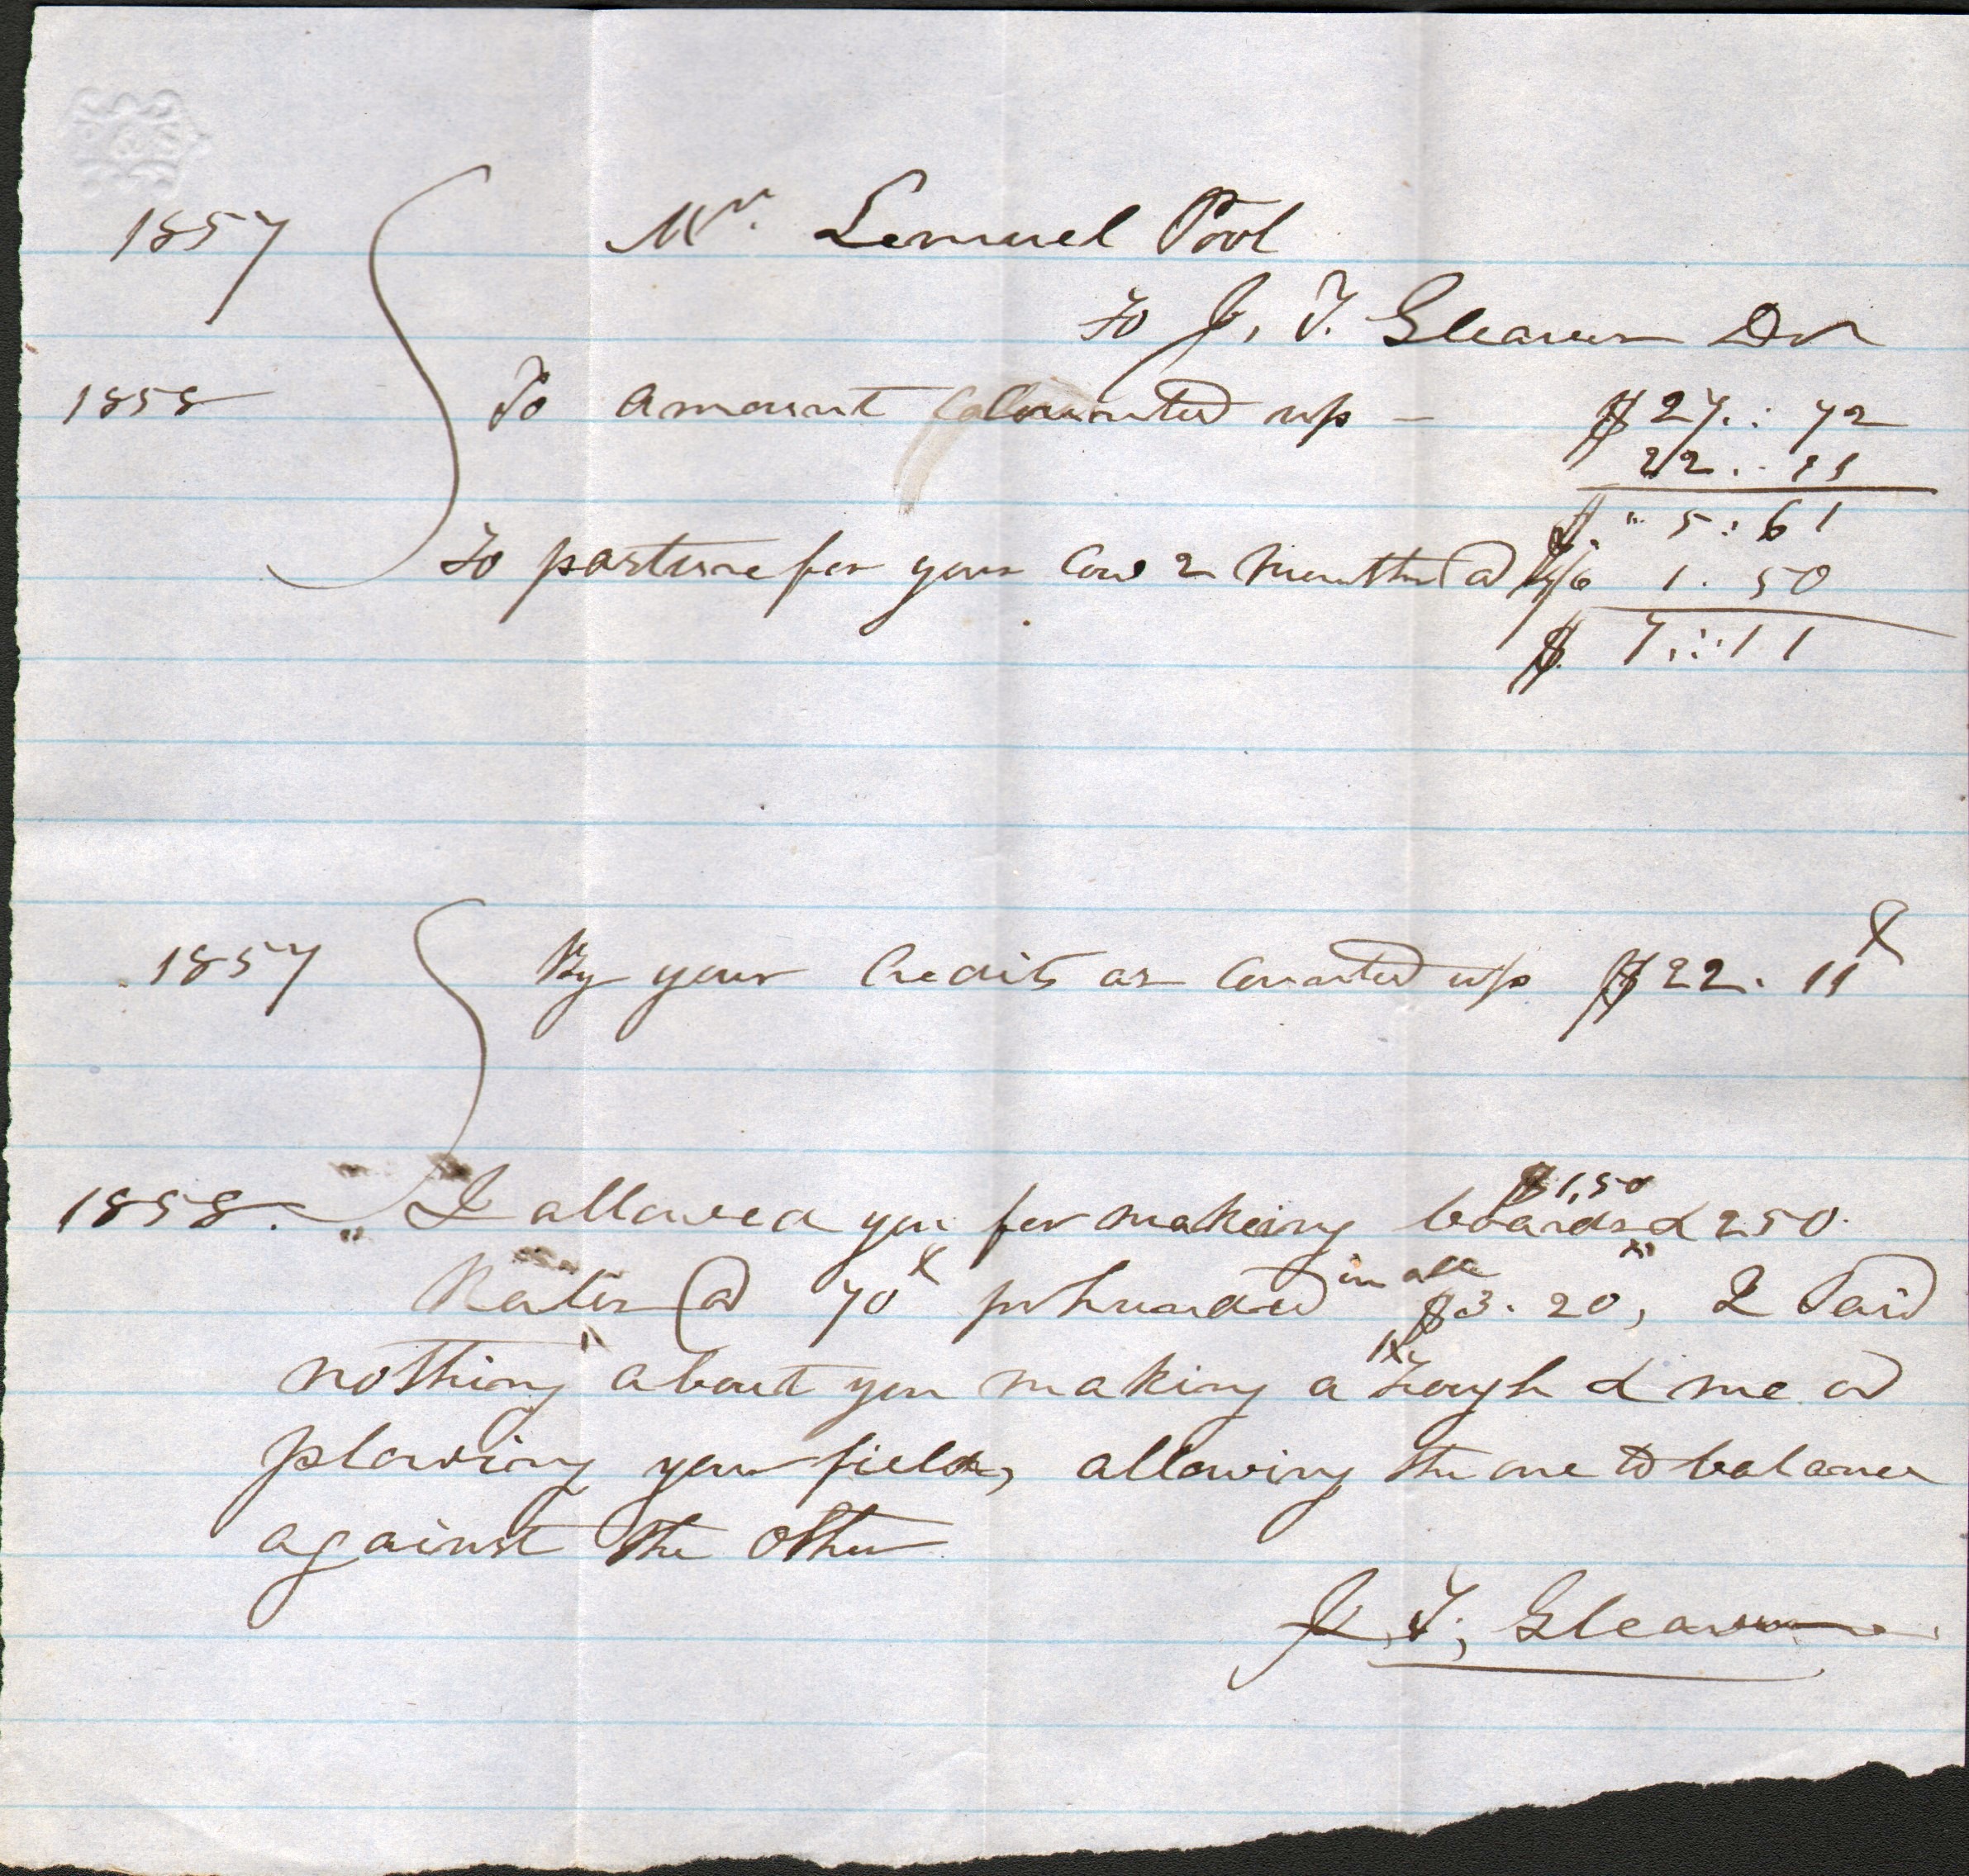 1857 Mr. Lemuel Pool
To J. T. Gleaves Dr
1858 To amount counted up - $27.:72
22.. 11
$ " 5:61
To pasture for your Cow 2 Months @ 4/6 1.50
$ 7.::11
1857 By your Credits as Counted up $22.11
$1,50
1858. I allowed you for making boards & 250
Rales @ 70 pr hundred in all $3.20, I Said
nothing about you making a trough & me a
plowing your field, allowing the one to balance
against the other
J. T. Gleaves